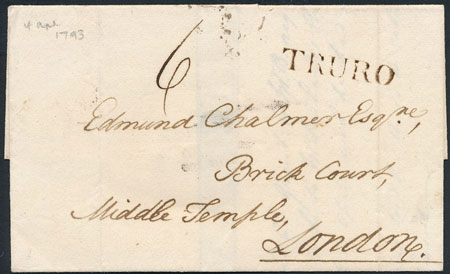 4 Apl
1793
6
TRURO
Edmund Chalmer Esqre,
Brick Court,
Middle Temple,
London.